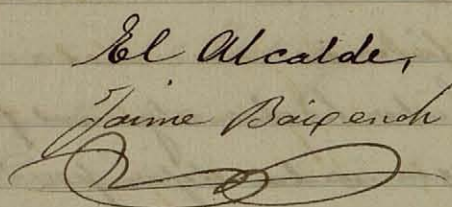 El Alcalde,
Jaime Baixench